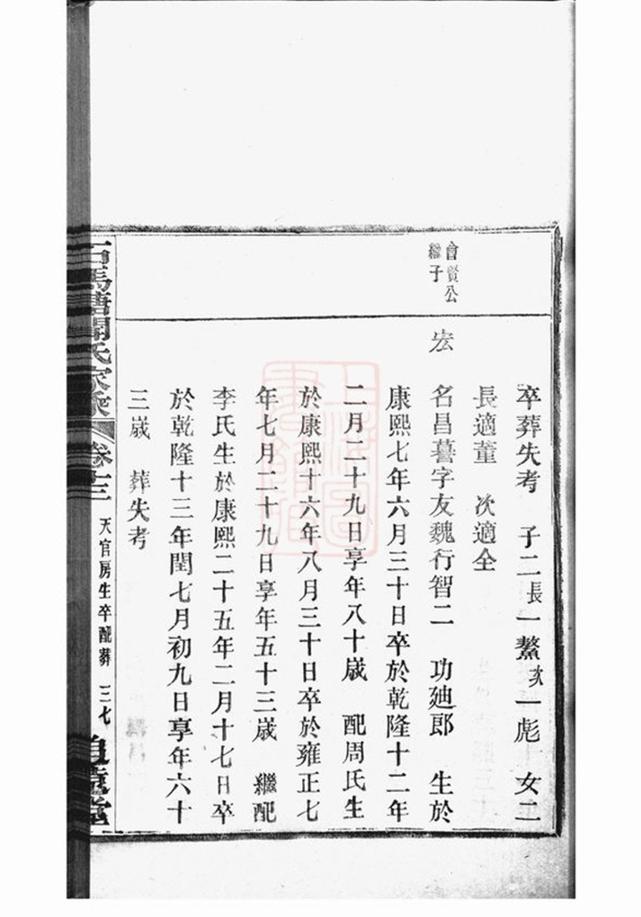 會賢公
繼子
卒葬失考 子二長一鰲次一彪 女二
長適董 次適全
宏 名昌暮字友魏行智二 功廸郎 生於
康熙七年六月三十日卒於乾隆十二年
二月二十九日享年八十歲 配周氏生
於康熙十六年八月三十日卒於雍正七
年七月二十九日享年五十三歲 繼配
李氏生於康熙二十五年二月十七日卒
於乾隆十三年閏七月初九日享年六十
三歲 葬失考
石馬塘關氏家乘 卷十三 天官房生卒配葬 三七